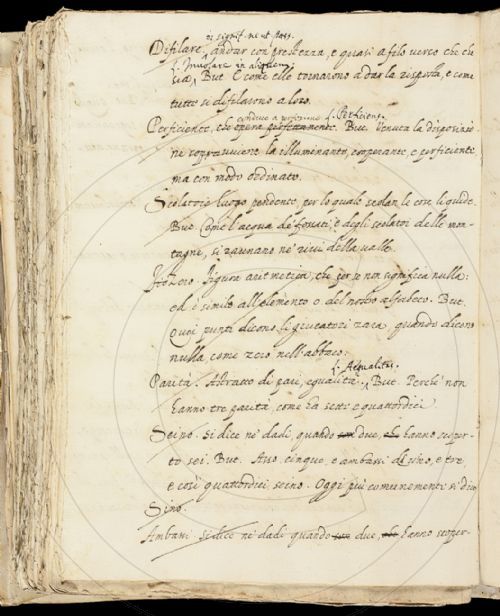 di signif. neut. pass.
Difilare, andar con prestezza, e quasi a filo verso che che
L. Involare in aliquem.
sia. But. E come elle tornarono a dar la risposta, e come
tutte si difilarono a loro.
conduce a perfezione L. Perficiens.
Perficiente, che opera perfettamente. But. Venuta la disposizio
ne sopravviene la illuminante, cooperante, e perficiente
ma con modo ordinato.
Scolatoio luogo pendente, per lo quale scolan le cose liquide.
But. Come l'acqua de' fossati, e degli scolatoi delle mon-
tagne, si raunano ne' rivi della valle.
Zero. Figura aritmetica, che per se non significa nulla:
ed è simile all'elemento o del nostro alfabeto. But.
Quei punti dicono li giucatori zara, quando dicono
nulla, come zero nell'abbaco.
L. Aequalitas.
Parità. Astratto di pari, egualità. But. Perchè non
hanno tre parità, come ha sette e quattordici
Seino. si dice ne' dadi, quando due, hanno scoper-
to sei. But. Asso, cinque, e ambassi di uno, e tre,
e così quattordici, seino. Oggi più comunemente si dice
Sino.
Ambassi. si dice ne' dadi quando due, hanno scoper-